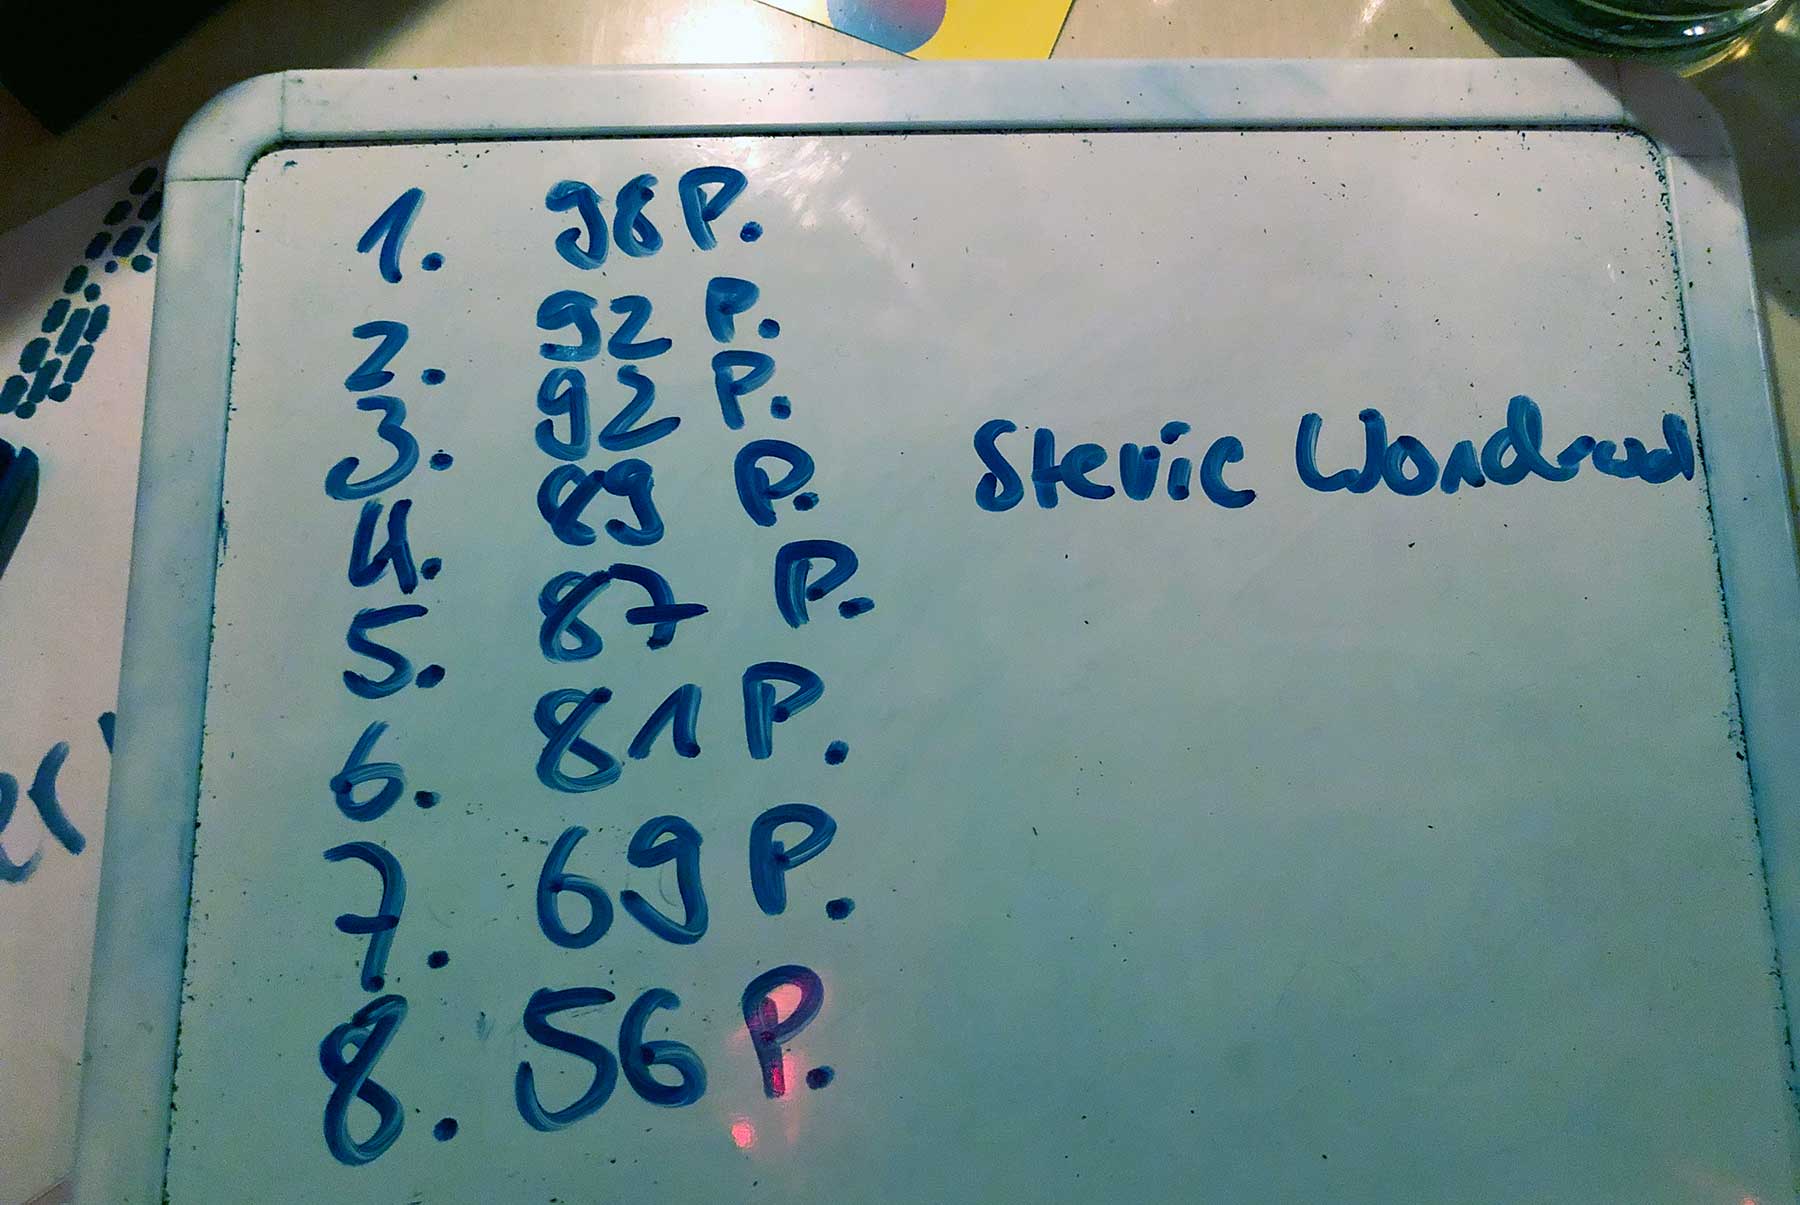 1. 98 P.
2. 92 P.
3. 92 P. Stevie Wondrad
4. 89 P.
5. 87 P.
6. 81 P.
7. 69 P.
8. 56 P.
er